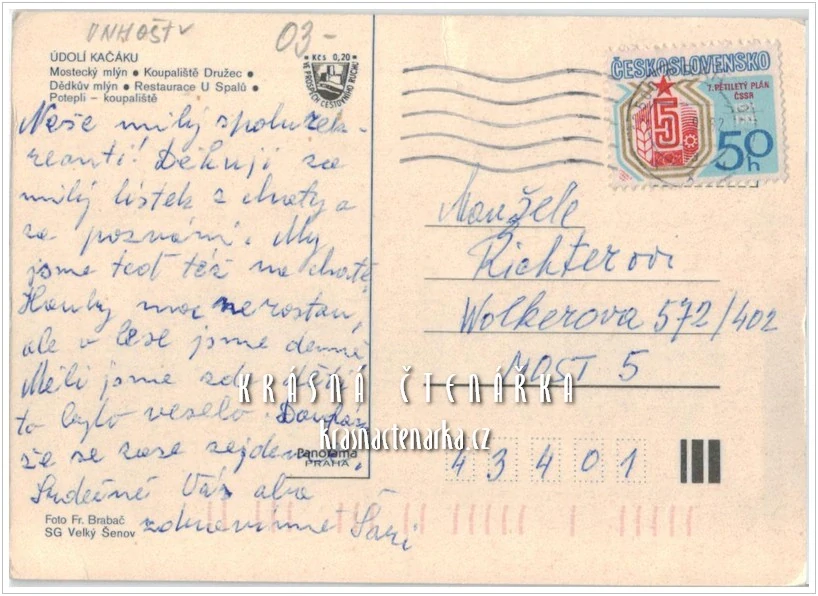 UNHOŠŤ
03-
ÚDOLÍ KAČÁKU
Mostecký mlýn • Koupaliště Družec •
Dědkův mlýn • Restaurace U Spalů •
Potepli – koupaliště
Kčs 0,20
VE PROSPĚCH CESTOVNÍHO RUCHU
Naše milý spolurek-
reanti! Děkuji za
milý lístek z chaty a
za pozvání. My
jsme teď též na chatě.
Houby moc nerostou,
ale v lese jsme denně
Měli jsme zde
to bylo veselo. Doufám
že se zase sejdeme.
Srdečně Vás oba
Foto Fr. Brabač
SG Velký Šenov
Panorama
PRAHA
ČESKOSLOVENSKO
7. PĚTILETÝ PLÁN
ČSSR
5
50 h
Manželé
Richterovi
Wolkerova 572/402
MOST 5
43401
KRÁSNÁ ČTENÁŘKA
krasnactenarka.cz